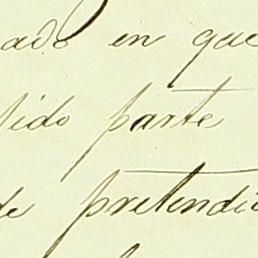 ado en que
sido parte
de pretendi